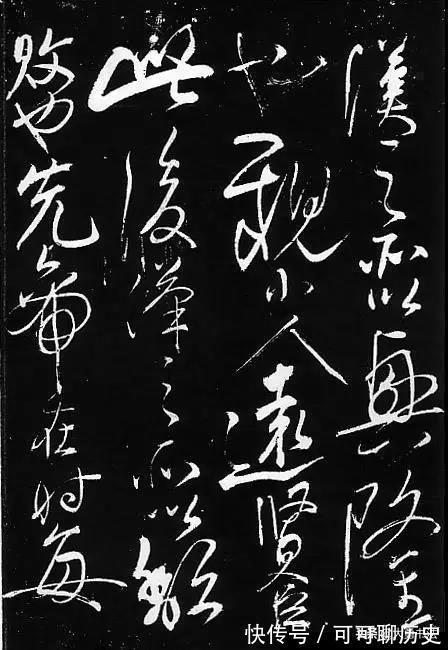 漢之所以興隆
也親小人遠賢臣
此後漢之所以傾
敗也先帝在時每
快传号 / 可可聊历史